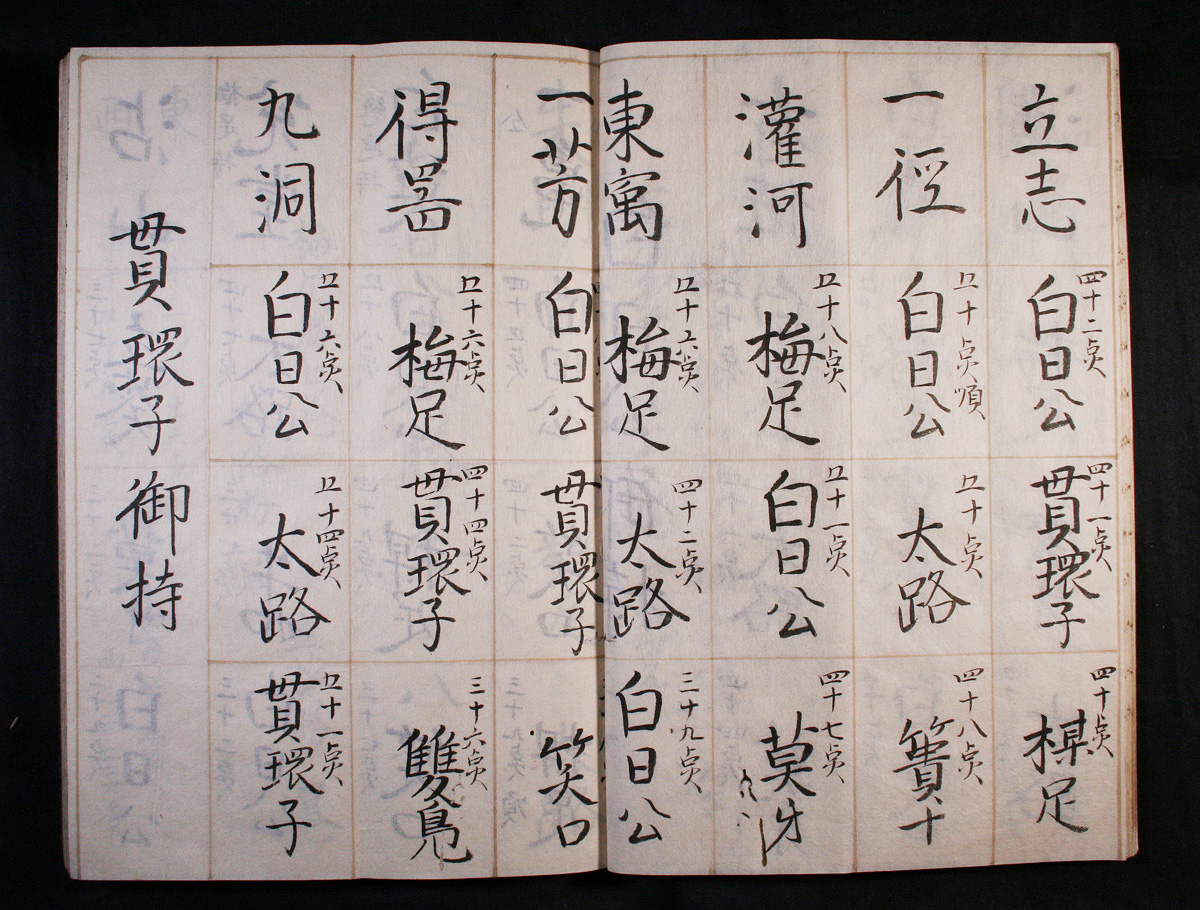 立志
四十二点
白日公
四十一点
貫環子
四十点
楳足
一徑
五十点順
白日公
五十点
太路
四十八点
灌河
五十八点
梅足
五十一点
白日公
四十七点
東寓
五十六点
梅足
四十二点
太路
三十九点
白日公
一芳
白日公
貫環子
笑口
得器
五十六点
梅足
四十四点
貫環子
三十六点
雙鳬
九洞
五十六点
白日公
五十四点
太路
五十一点
貫環子
貫環子御持